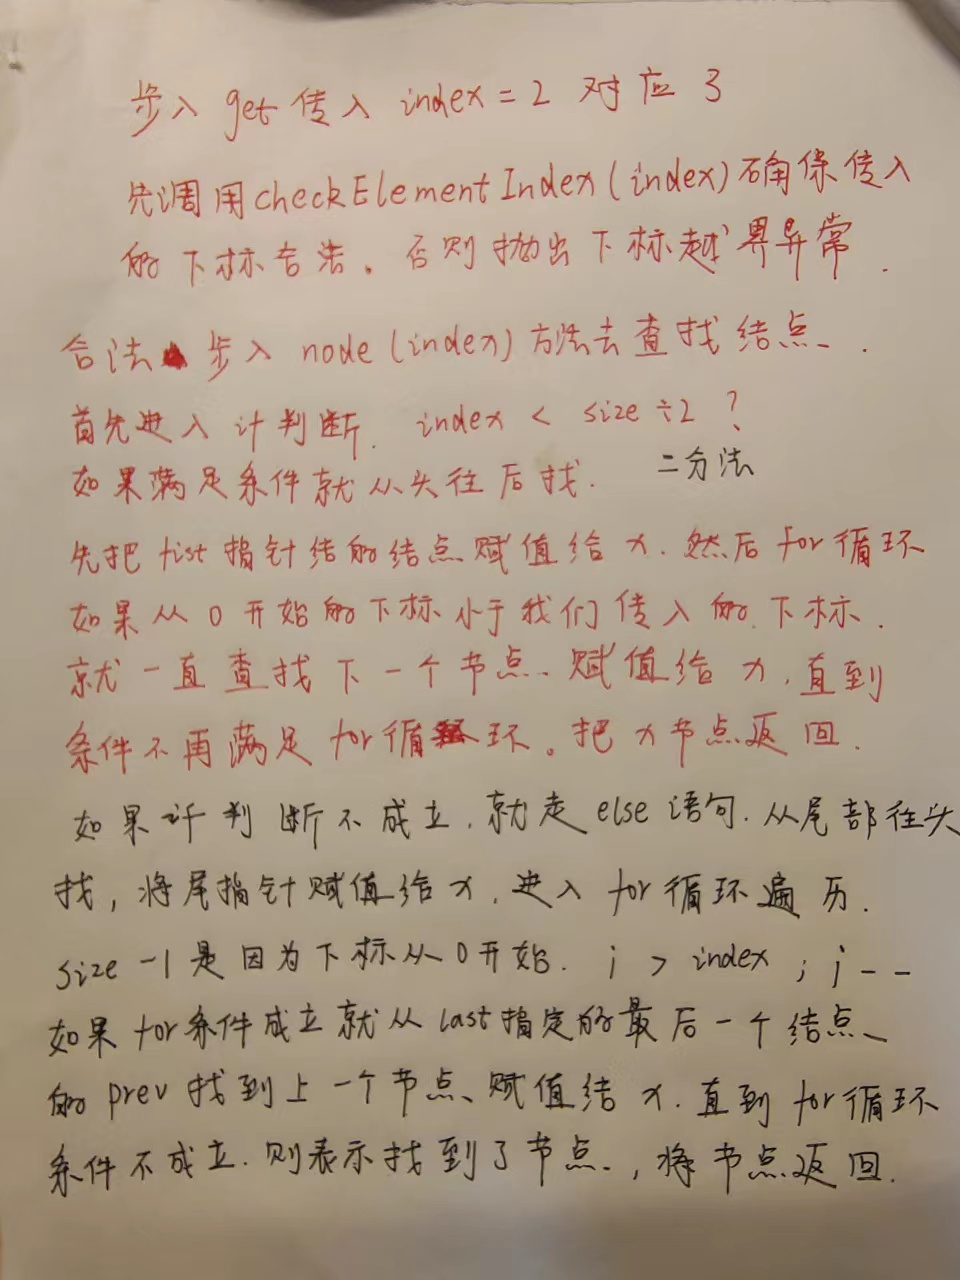 步入 get 传入 index = 2 对应 3
先调用checkElementIndex(index)确保传入
的下标合法。否则抛出下标越界异常.
合法 步入 node (index) 方法去查找结点.
首先进入 计判断. index < size ÷2 ?
如果满足条件就从头往后找.
二分法
先把 fist 指针结的结点赋值给 x. 然后 for 循环
如果从 0 开始的下标小于我们传入的下标.
就一直查找下一个节点、赋值给 x, 直到
条件不再满足 for 循环。把 x 节点返回.
如果计判断不成立, 就走 else 语句. 从尾部往头
找, 将尾指针赋值给 x, 进入 for 循环遍历.
size -1 是因为下标从 0 开始. i > index ; i - -
如果 for 条件成立就从 last 指定的最后一个结点
的 prev 找到上一个节点、赋值结 x. 直到 for 循环
条件不成立. 则表示找到了节点., 将节点返回.